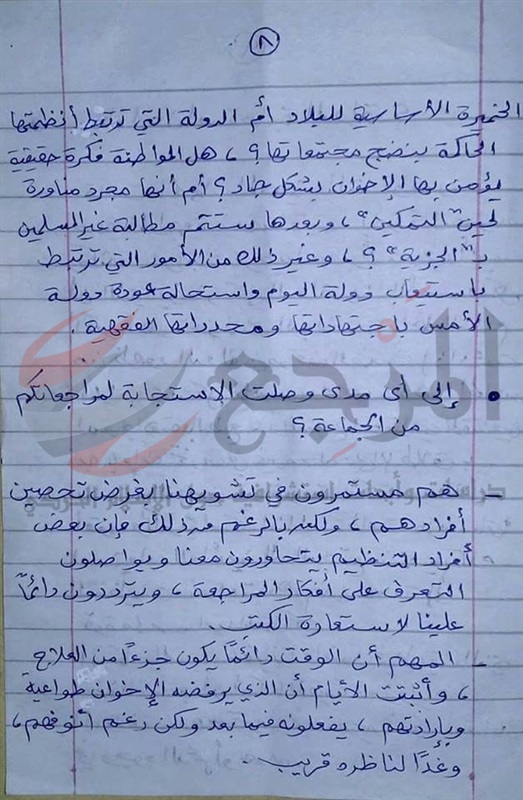 ٨
الخميرة الأساسية للبلاد أم الدولة التي ترتبط أنظمتها
الحاكمة بنضج مجتمعاتها؟، هل المواطنة فكرة حقيقية
يؤمن بها الإخوان بشكل جاد؟ أم أنها مجرد مناورة
لحين "التمكين"، وبعدها ستتم مطالبة غير المسلمين
بـ"الجزية"؟، وغير ذلك من الأمور التي ترتبط
باستيعاب دولة اليوم واستحالة عودة دولة
الأمس باجتهاداتها ومحدداتها الفقهية.
• إلى أى مدى وصلت الإستجابة لمراجعاتكم
من الجماعة؟
- هم مستمرون في تشويهنا بغرض تحصين
أفرادهم، ولكن بالرغم من ذلك فإن بعض
أفراد التنظيم يتحاورون معنا ويواصلون
التعرف على أفكار المراجعة، ويترددون دائمًا
علينا لاستعارة الكتب.
- المهم أن الوقت دائمًا يكون جزءًا من العلاج
، وأثبتت الأيام أن الذي يرفضه الإخوان طواعية
وبإرادتهم، يفعلونه فيما بعد ولكن رغم أنوفهم،
وغدًا لناظره قريب.
المرجع